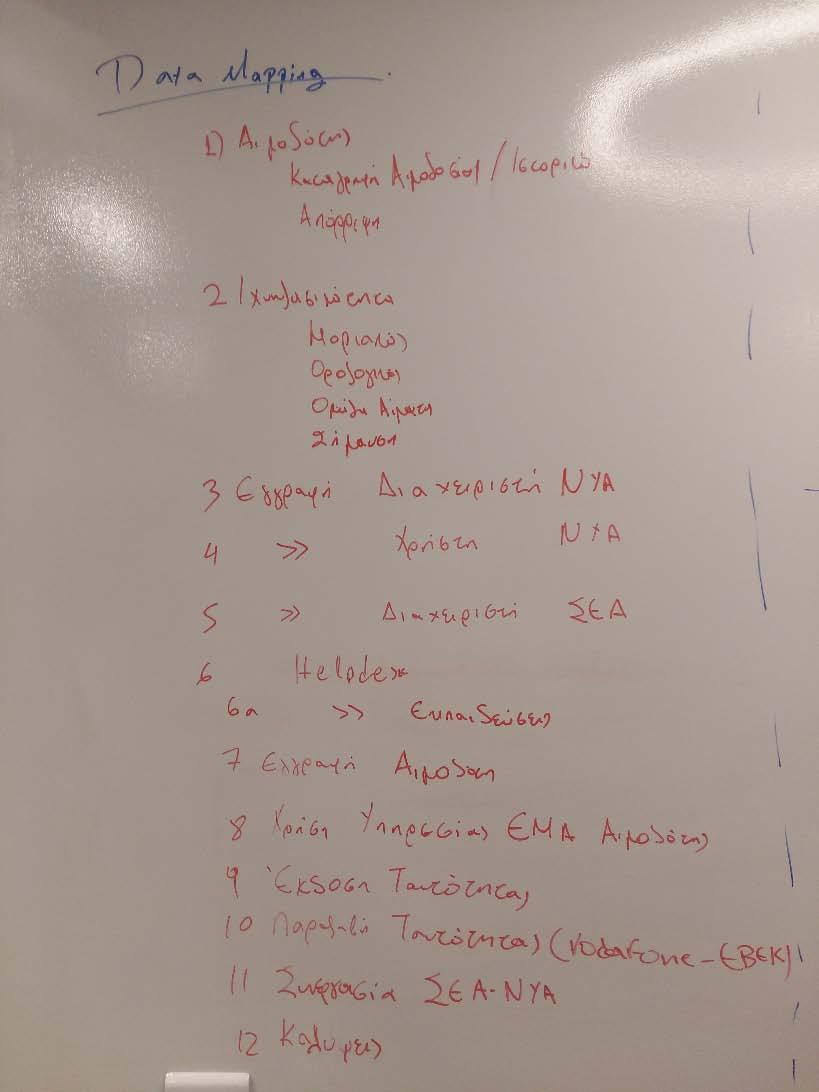 Data Mapping
1) Αιμοδότης
Καταγραφή Αιμοδοσίας / Ιστορικό
Απόρριψη
2 Ιχνηλασιμότητα
Μοριακός
Ορολογικός
Ομάδα Αίματος
Σήμανση
3 Εγγραφή Διαχειριστή ΝΥΑ
4 >> Χρήστη ΝΥΑ
5 >> Διαχειριστή ΣΕΑ
6 Helpdesk
6α >> Εκπαιδεύσεις
7 Εγγραφή Αιμοδότη
8 Χρήση Υπηρεσσίας ΕΜΑ Αιμοδότης
9 Έκδοση Ταυτότητας
10 Παραλαβή Ταυτότητας (Vodafone - ΕΒΕΚ)
11 Συνεργασία ΣΕΑ - ΝΥΑ
12 Καλύψεις